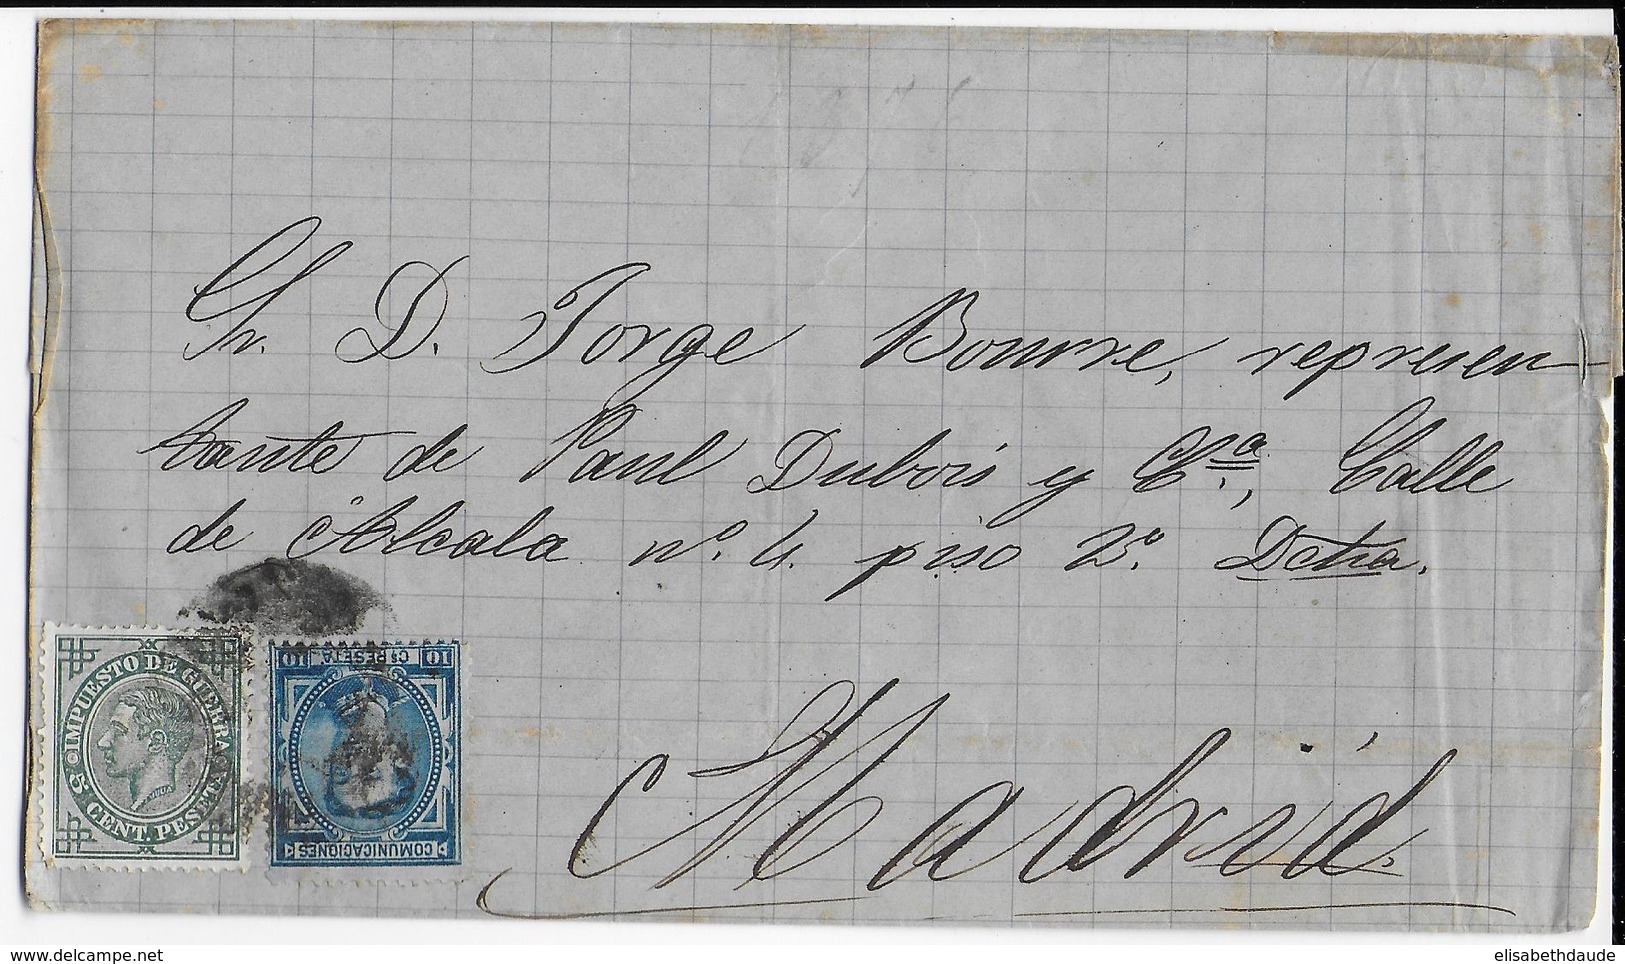 Sr. D. Jorge Bourre, represen
tante de Paul Dubois y Cª., Calle
de Alcala nº. 4. piso 2º. Dcha.
Madrid.
IMPUESTO DE GUERRA
5 CENT. PESETA
10 Cs PESETA 10
COMUNICACIONES
delcampe.net
elisabethdaude